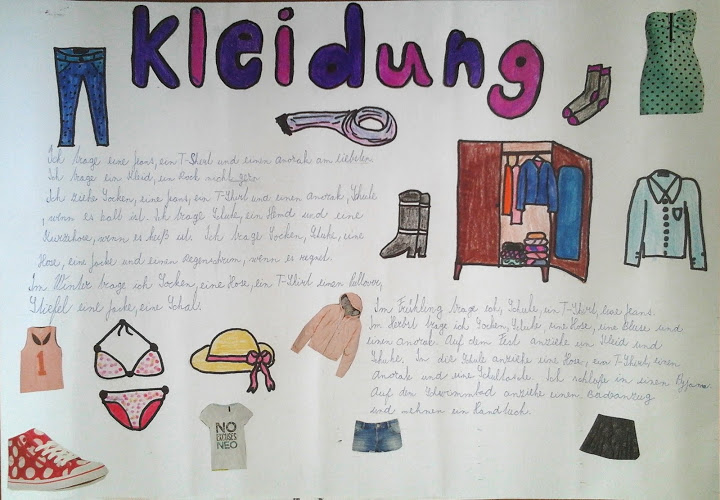 Kleidung
Ich trage eine Jeans, ein T-Shirt und einen Anorak am liebsten.
Ich trage ein Kleid, ein Rock nicht gern.
Ich ziehe Socken, eine Jeans, ein T-Shirt und einen Anorak, Schuhe
, wenn es kalt ist. Ich trage Schuhe, ein Hemd und eine
Kurzehose, wenn es heiß ist. Ich trage Socken, Schuhe, eine
Hose, eine Jacke und einen Regenschirm, wenn es regnet.
Im Winter trage ich Socken, eine Hose, ein T-Shirt einen Pullover,
Stiefel eine Jacke, eine Schal.
Im Frühling trage ich, Schuhe, ein T-Shirt, eine Jeans.
Im Herbst trage ich Socken, Schuhe eine Hose, eine Bluse und
einen Anorak. Auf dem Fest anziehe ein Kleid und
Schuhe. In die Schule anziehe eine Hose, ein T-Shirt, einen
Anorak und eine Schultasche. Ich schlafe in einen Pyjama.
Auf den Schwimmbad anziehe einen Badeanzug
und nehmen ein Handtuch.
1
NO
NEO